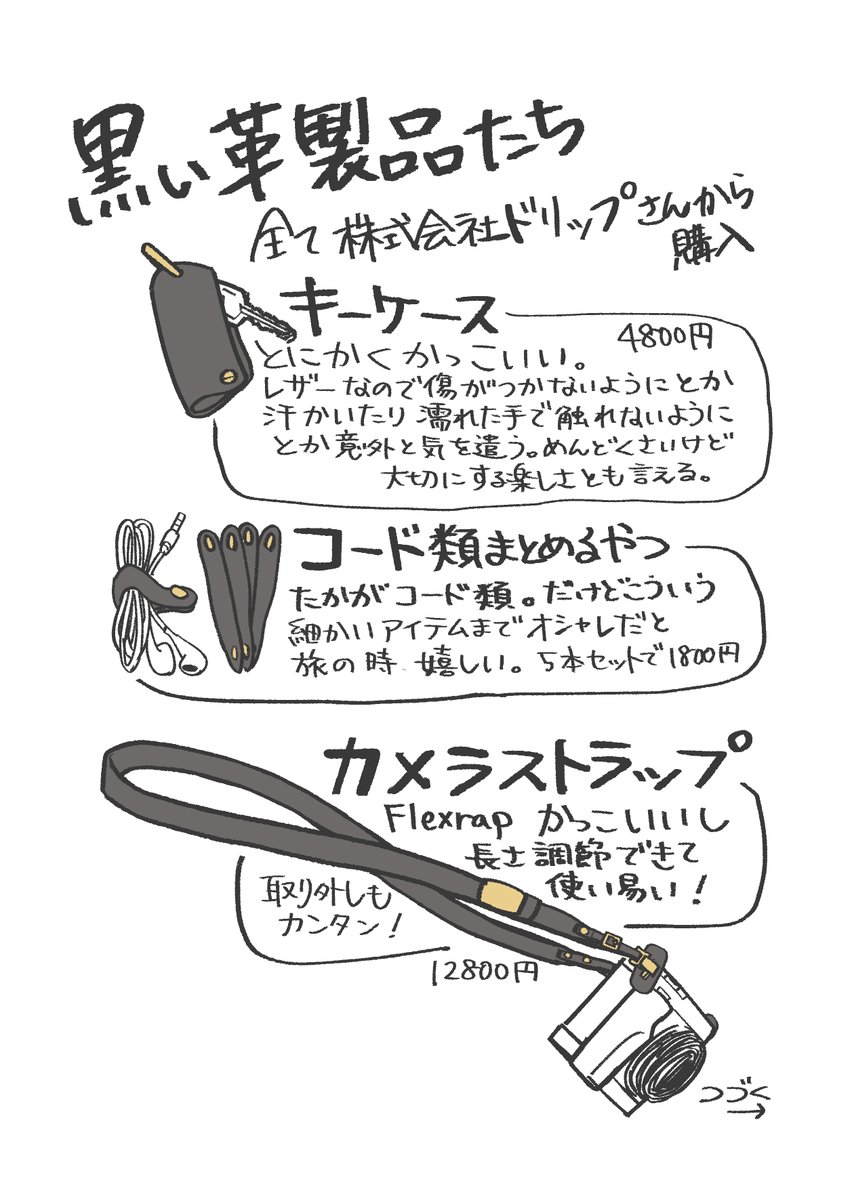 黒い革製品たち
全て株式会社ドリップさんから
購入
キーケース
4800円
とにかくかっこいい。
レザーなので傷がつかないようにとか
汗かいたり濡れた手で触れないように
とか意外と気を遣う。めんどくさいけど
大切にする楽しさとも言える。
コード類まとめるやつ
たかがコード類。だけどこういう
細かいアイテムまでオシャレだと
旅の時嬉しい。5本セットで1800円
カメラストラップ
Flexrap かっこいいし
長さ調節できて
使い易い!
取り外しも
カンタン!
12800円
つづく
→